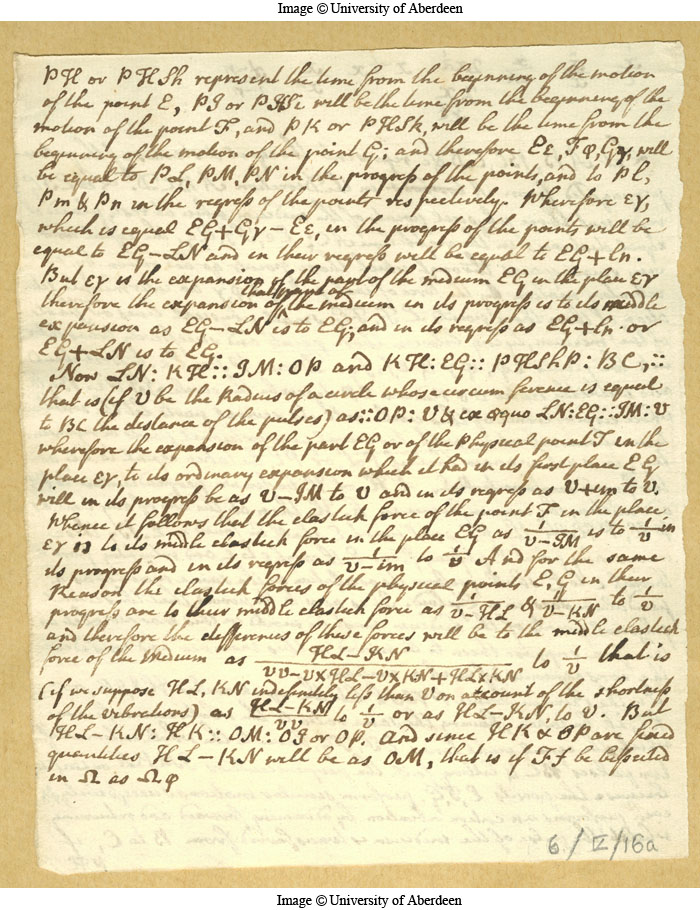 Image © University of Aberdeen
PH or PHSh represent the time from the beginning of the motion
of the point E, PI or PHSi will be the time from the beginning of the
motion of the point F, and PK or PHSk, will be the time from the
beginning of the motion of the point G; and therefore Eε, Fφ, Gγ, will
be equal to PL, PM, PN in the progress of the points, and to Pl,
Pm & Pn in the regress of the points respectively. Wherefore εγ,
which is equal EG+Gγ−Eε, in the progress of the points will be
equal to EG−LN and in their regress will be equal to EG+ln.
But εγ is the expansion of the part of the medium EG in the place εγ
therefore the expansion of that part the medium in its progress is to its middle
expansion as EG−LN is to EG; and in its regress as EG+ln or
EG+LN is to EG.
Now LN: KH:: IM: OP and KH: EG:: PHShP: BC, ::
that is (if V be the Radius of a circle whose circumference is equal
to BC the distance of the pulses) as :: OP: V & ex æquo LN: EG:: IM: V
wherefore the expansion of the part EG or of the Physical point F in the
place εγ, to its ordinary expansion which it had in its first place EG
will in its progress be as V−IM to V and in its regress as V+im to V.
Whence it follows that the elastick force of the point F in the place
εγ is to its middle elastick force in the place EG as 1/V−IM is to 1/V in
its progress and in its regress as 1/V−im to 1/V And for the same
Reason the elastick forces of the physical points E, G in their
progress are to their middle elastick force as 1/V−HL & 1/V−KN to 1/V
and therefore the differences of these forces will be to the middle elastick
force of the Medium as HL−KN/VV−V×HL−V×KN+HL×KN to 1/V that is
(if we suppose HL, KN indefinitely less than V on account of the shortness
of the vibrations) as HL−KN/VV to 1/V or as HL−KN, to V. But
HL−KN: HK:: OM: OI or OP. and since HK & OP are fixed
quantities HL−KN will be as OM, that is if Ff be bessected
in Ω as Ωφ
6/II/16a
Image © University of Aberdeen